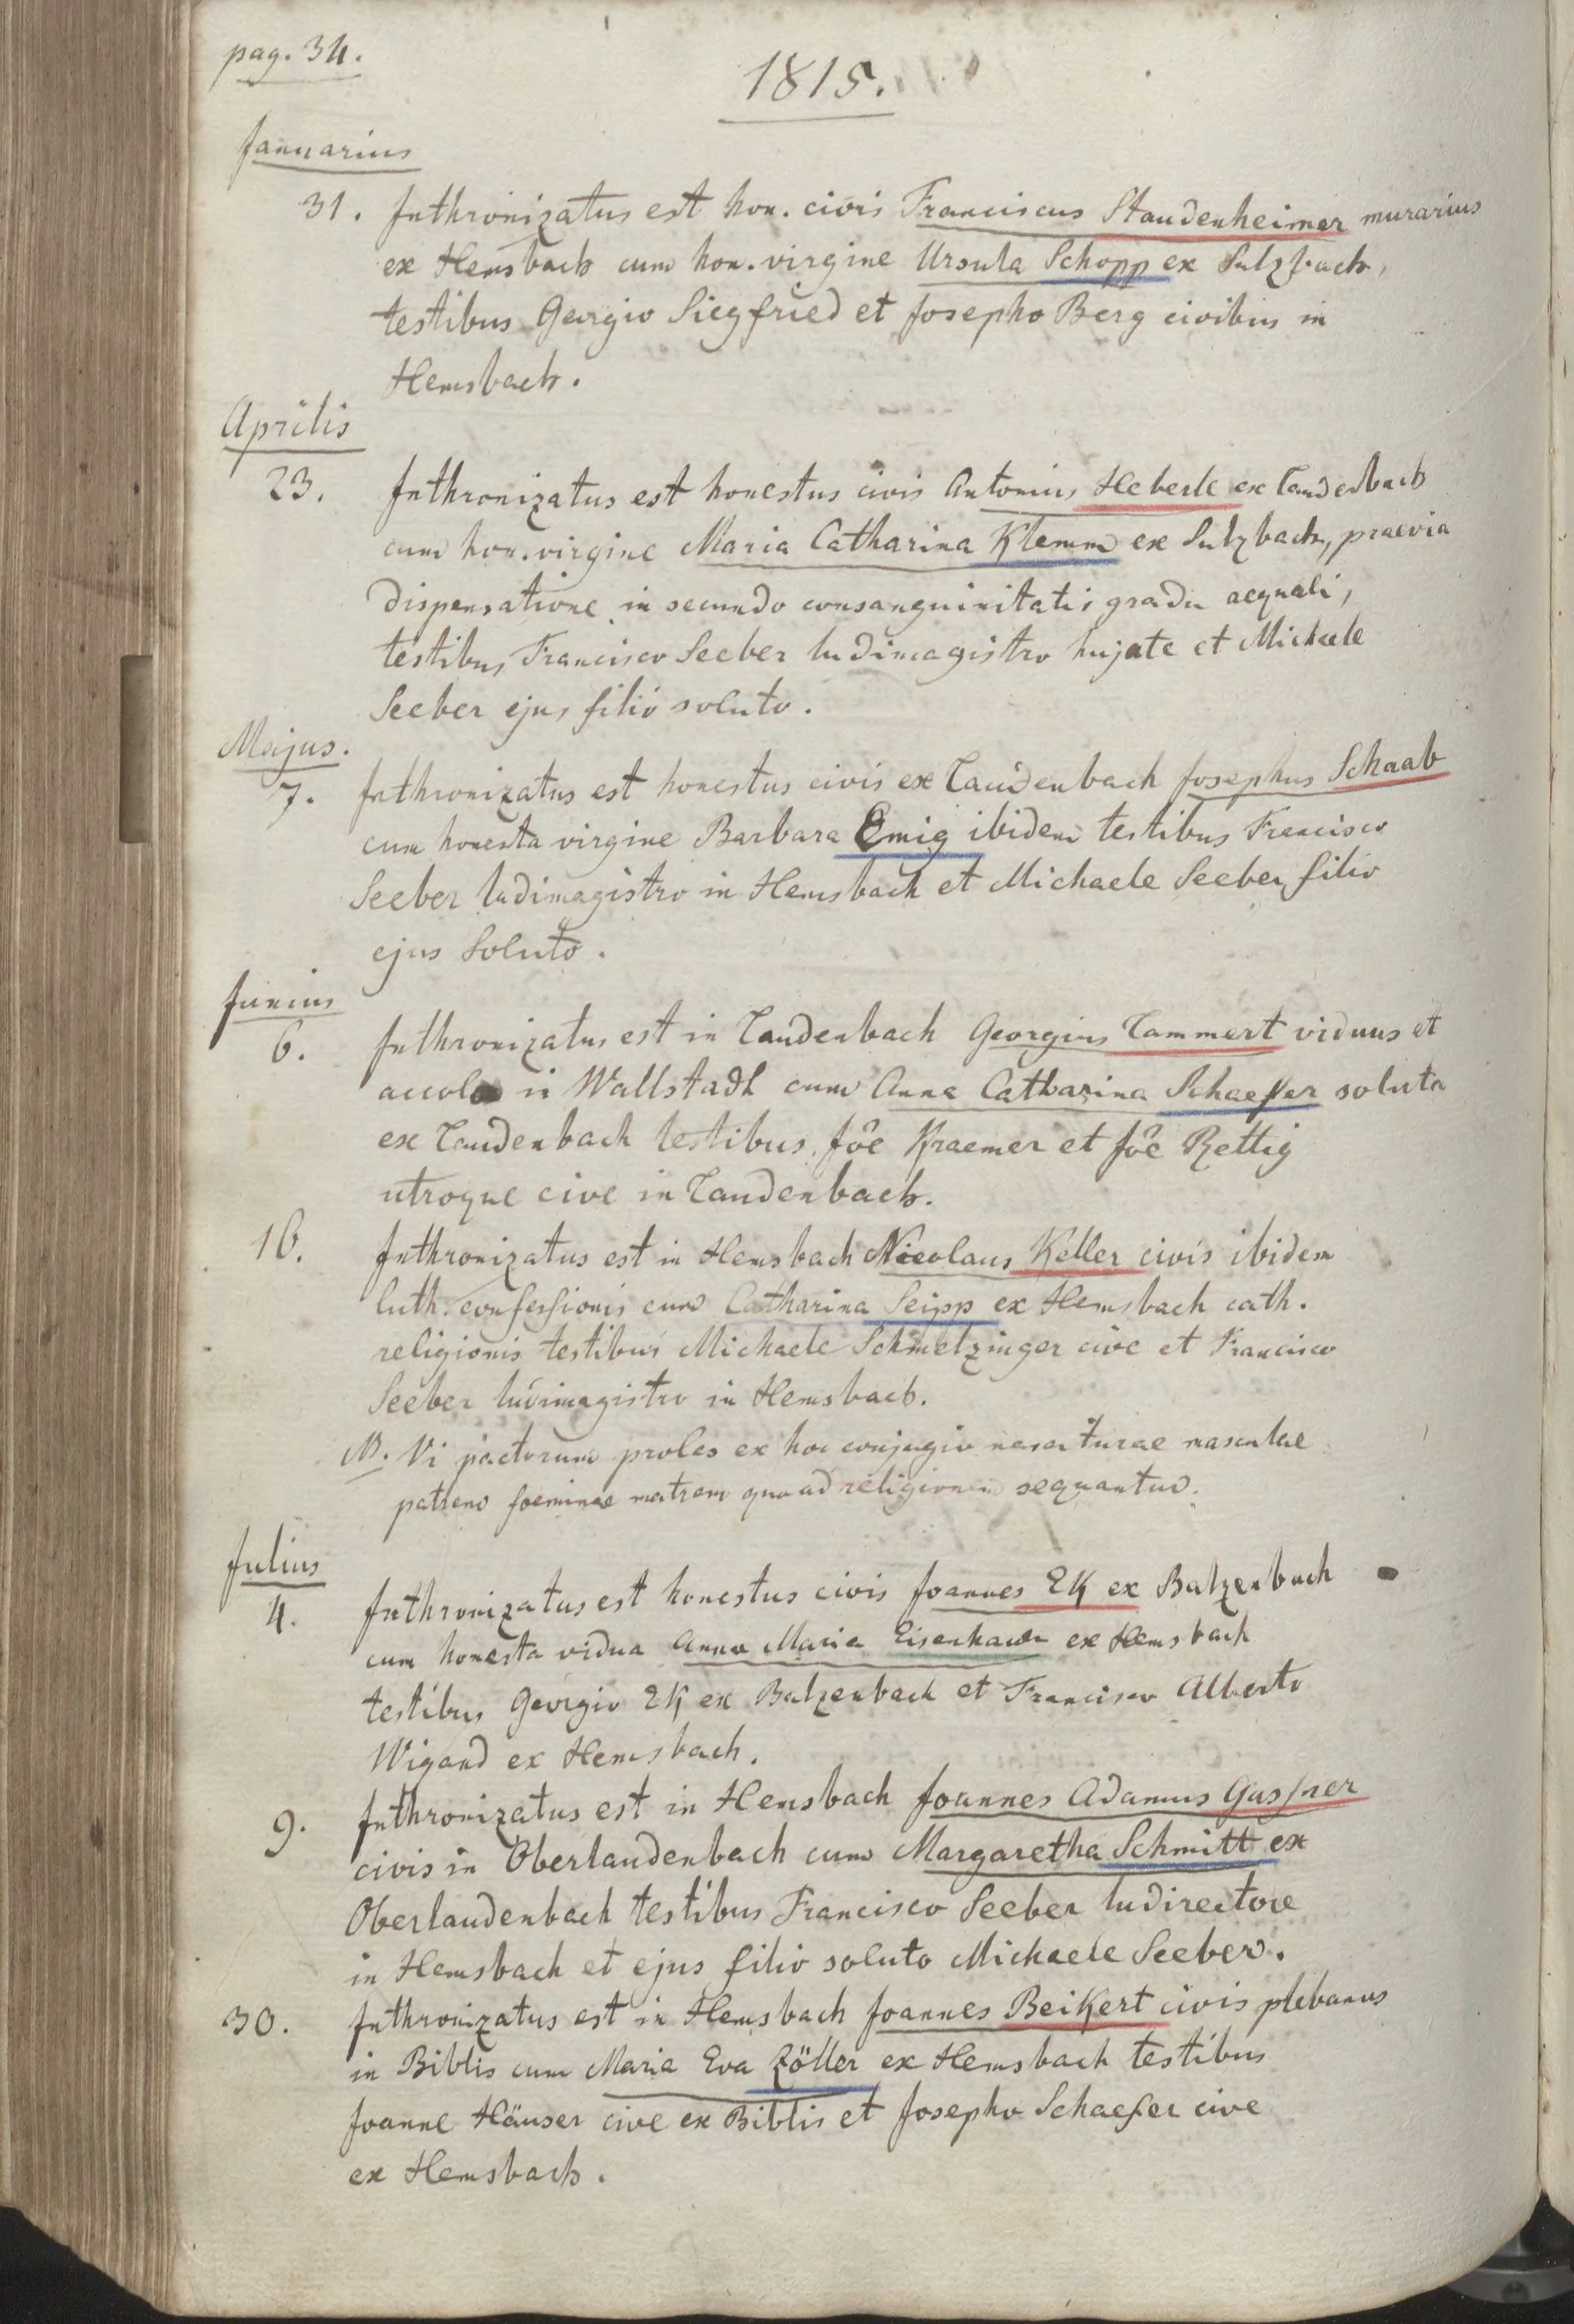 pag. 34.
1815.
Januarius
31. Inthronizatus est hon. civis Franciscus Staudenheimer murarius
ex Hemsbach cum hon. virgine Ursula Schopp ex Sulzbach,
testibus Georgio Siegfried et Josepho Berg civibus in
Hemsbach.
Aprilis
23. Inthronizatus est honestus civis Antonius Heberle ex Laudenbach
cum hon. virgine Maria Catharina Klemm ex Sulzbach, praevia
dispensatione in secundo consanguinitatis gradu aequali,
testibus Francisco Seeber ludimagistro hujate et Michaele
Seeber ejus filio soluto.
Majus.
7. Inthronizatus est honestus civis ex Laudenbach Josephus Schaab
cum honesta virgine Barbara Emig ibidem testibus Francisco
Seeber ludimagistro in Hemsbach et Michaele Seeber filio
ejus soluto.
Junius
6. Inthronizatus est in Laudenbach Georgius Lammert viduus et
accola in Wallstadt cum Anna Catharina Schaeffer soluta
ex Laudenbach testibus Jôe Kraemer et Jôe Rettig
utroque cive in Laudenbach.
16. Inthronizatus est in Hemsbach Nicolaus Keller civis ibidem
luth. confessionis cum Catharina Seipp ex Hemsbach cath.
religionis testibus Michaele Schmelzinger cive et Francisco
Seeber ludimagistro in Hemsbach.
NB. Vi pactorum proles ex hoc conjugio nasciturae masculae
patrem foeminae matrem quoad religionem sequantur.
Julius
4. Inthronizatus est honestus civis Joannes EK ex Balzenbach
cum honesta vidua Anna Maria Eisenhauer ex Hemsbach
testibus Georgio EK ex Balzenbach et Francisco Alberto
Wigand ex Hemsbach.
9. Inthronizatus est in Hemsbach Joannes Adamus Gassner
civis in Oberlaudenbach cum Margaretha Schmitt ex
Oberlaudenbach testibus Francisco Seeber ludirectore
in Hemsbach et ejus filio soluto Michaele Seeber.
30. Inthronizatus est in Hemsbach Joannes Beikert civis plebanus
in Biblis cum Maria Eva Zöller ex Hemsbach testibus
Joanne Häuser cive ex Biblis et Josepho Schaefer cive
ex Hemsbach.